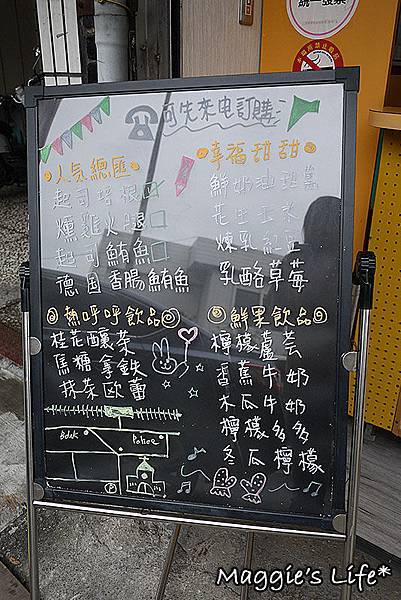 統一發票
可先來电訂購
人気總匯
起司培根
燻雞火腿
起司鮪魚
德国香腸鮪魚
幸福甜甜
鮮奶油班蘭
花生玉米
煉乳紅豆
乳酪草莓
熱呼呼飲品
桂花釀茶
焦糖拿鉄
抹茶欧蕾
鮮果飲品
檸檬蘆荟
香蕉牛奶
木瓜牛奶
檸檬多多
冬瓜檸檬
Police
P
Maggie's Life*